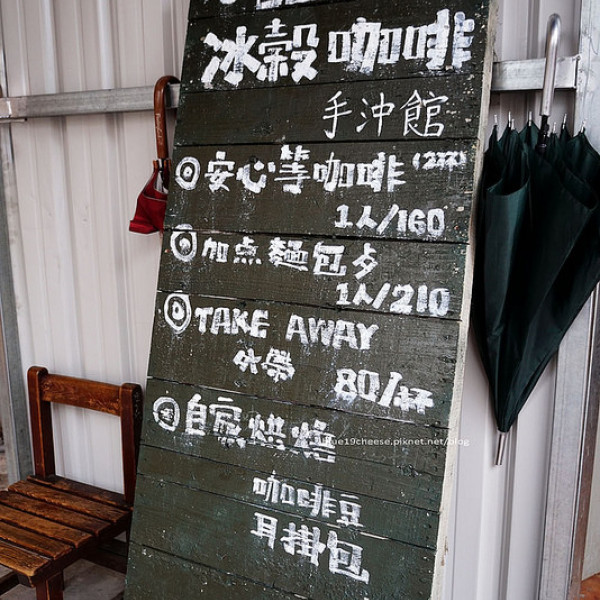 冰穀咖啡
手沖館
安心等咖啡
1人/160
加点麵包
1人/210
TAKE AWAY
外帶
80/杯
自家烘焙
咖啡豆
耳掛包